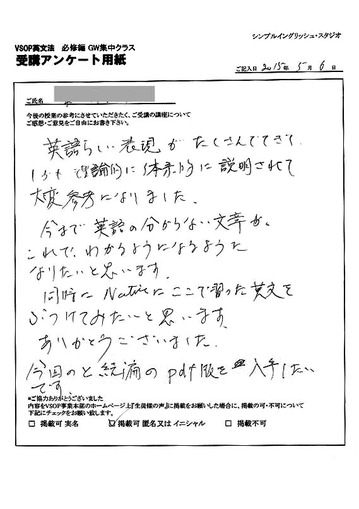 シンプルイングリッシュ・スタジオ
VSOP英文法 必修編 GW集中クラス
受講アンケート用紙
ご記入日 2015年 5月 6日
ご氏名
今後の授業の参考にさせていただきたく、ご受講の講座について
ご感想・ご意見をご自由にお書き下さい。
英語らしい表現がたくさんでてきて
しかも理論的に体系的に説明されて
大変参考になりました。
今まで英語の分からない文章が。
これで、わかるようになるように
なりたいと思います。
同時にNativeにここで習った英文を
ぶつけてみたいと思います。
ありがとうございました。
今回のと続論のpdf版を入手したい
です。
*ご協力ありがとうございました
内容をVSOP事業本部のホームページ上『生徒様の声』に掲載をお願いした場合に、掲載の可・不可について
下記にチェックをお願い致します。
☐ 掲載可 実名 ☑ 掲載可 匿名又は イニシャル ☐ 掲載不可